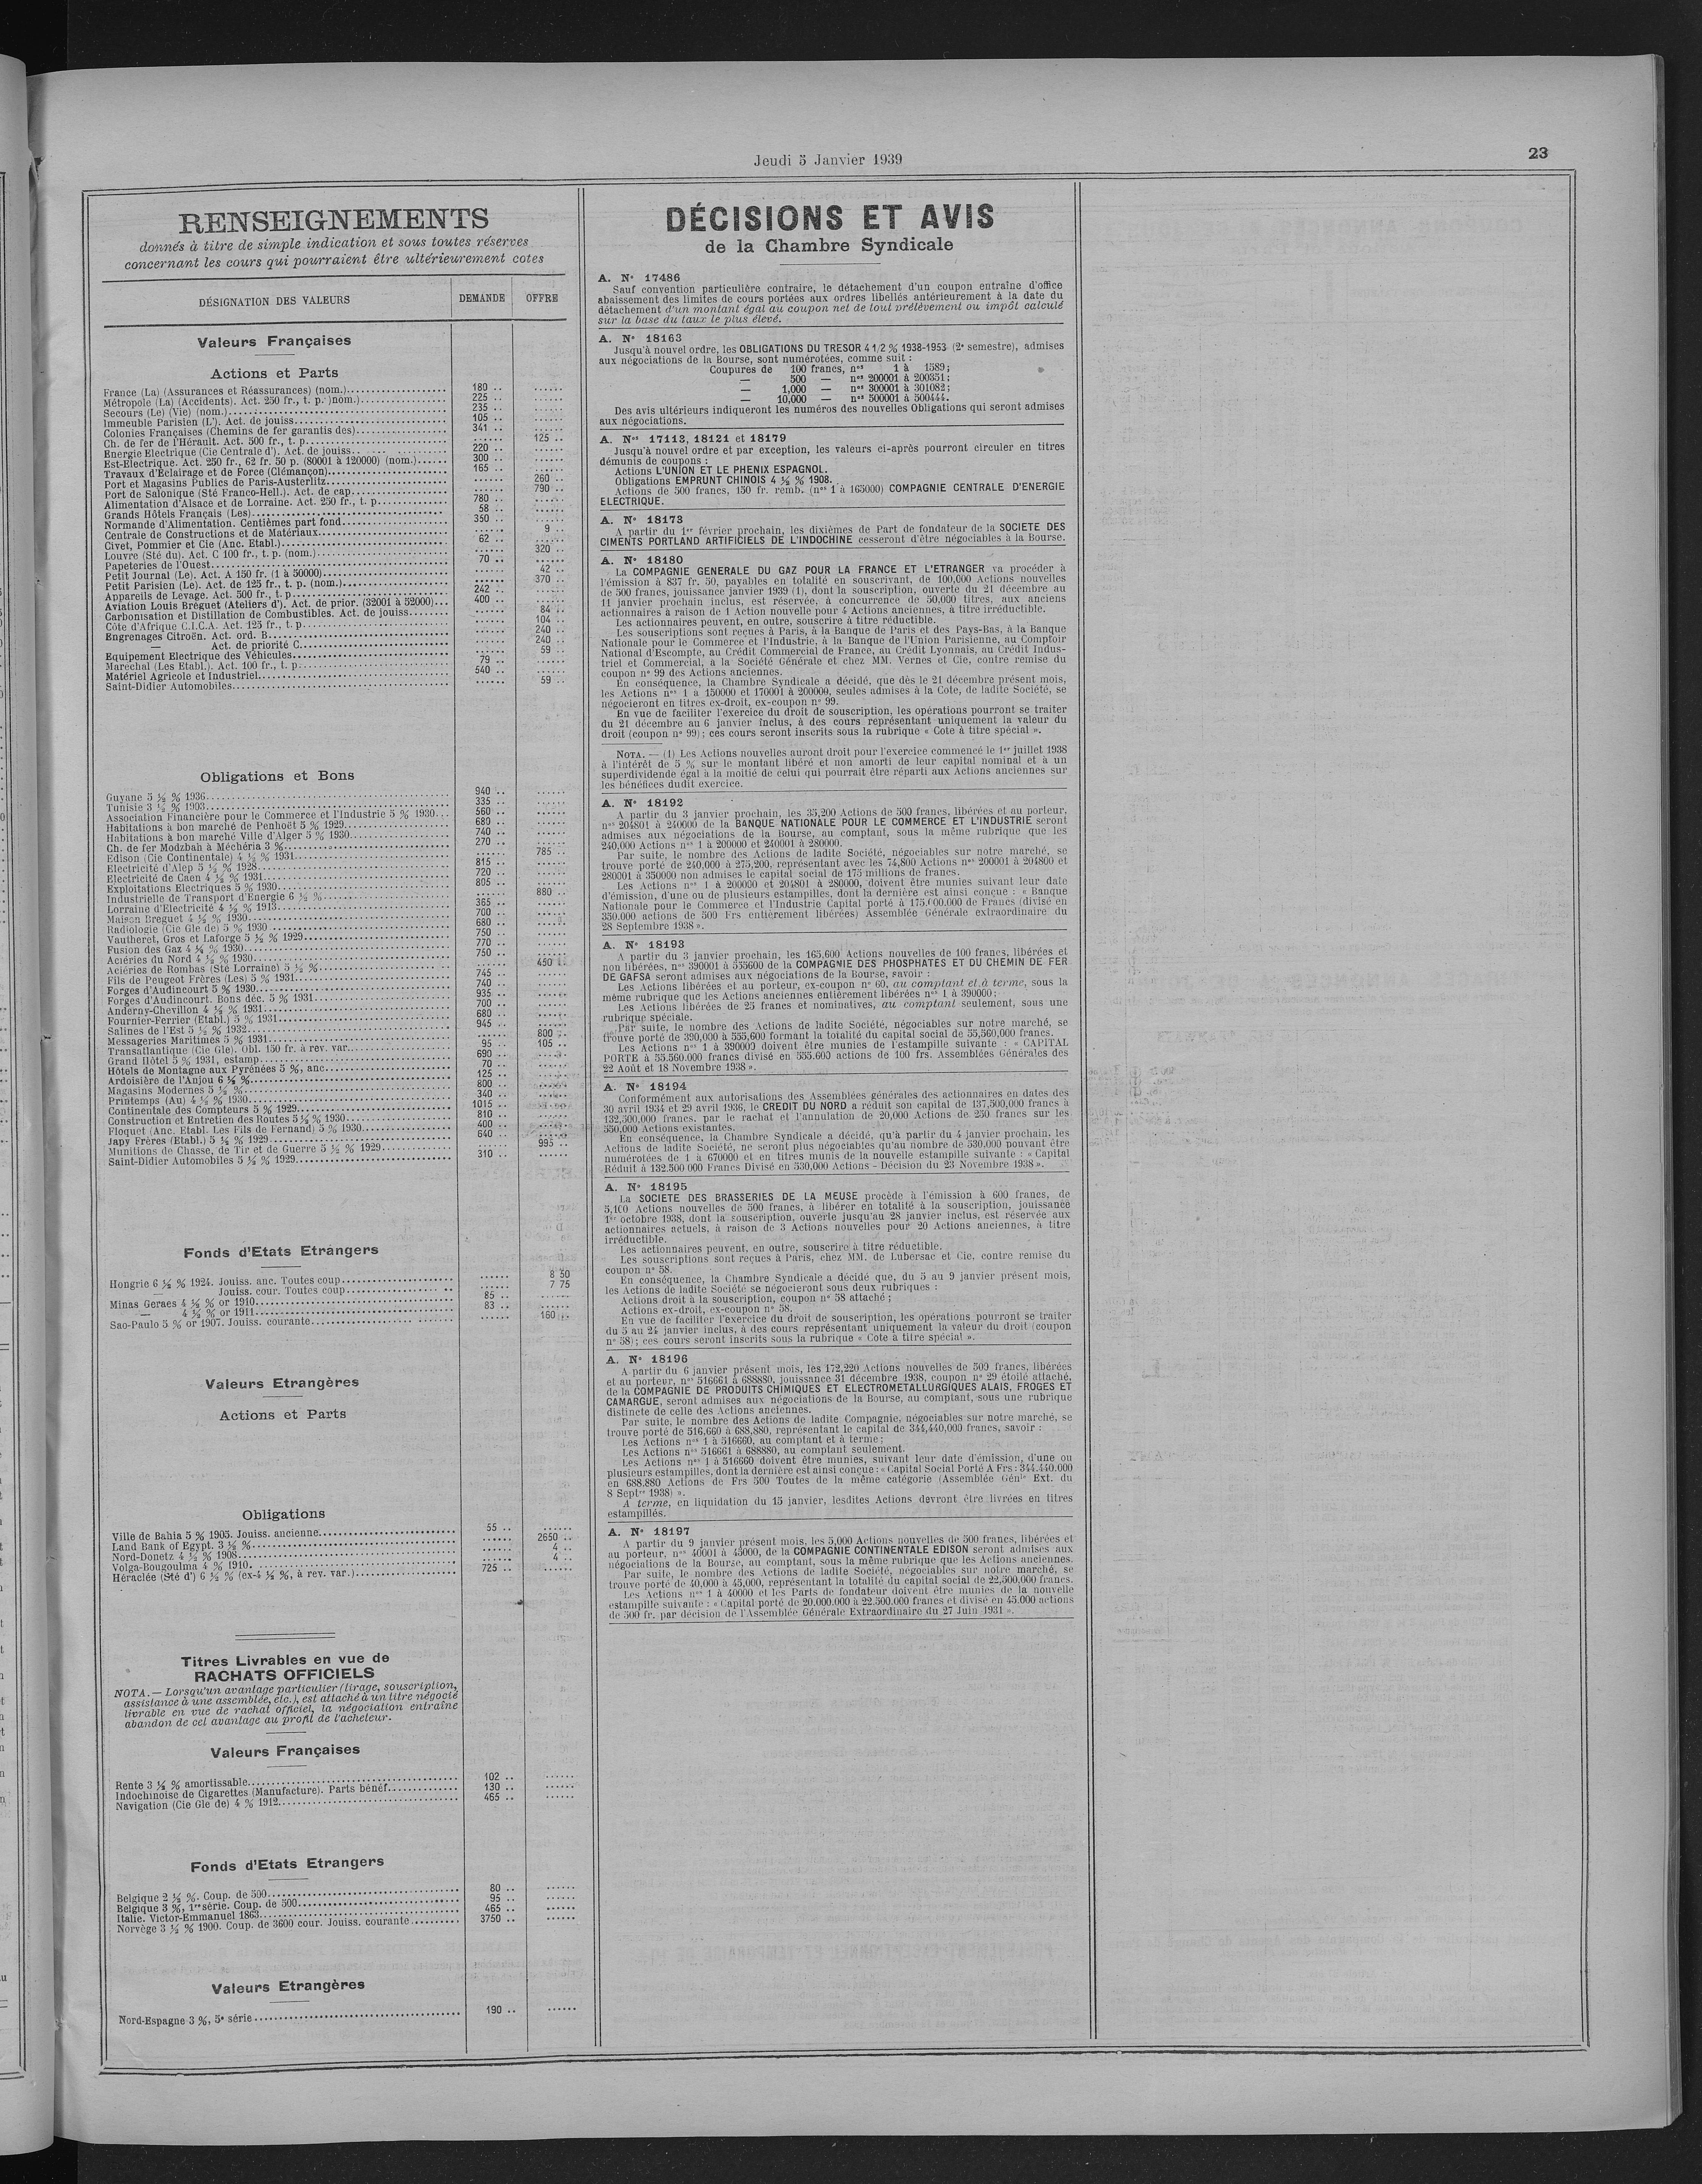 Jeudi 5 Janvier 1939
23
RENSEIGNEMENTS
donnés à titre de simple indication et sous toutes réserves
concernant les cours qui pourraient être ultérieurement cotes
DÉSIGNATION DES VALEURS DEMANDE OFFRE
Valeurs Françaises
Actions et Parts
France (La) (Assurances et Réassurances) (nom.) 180 ..
Métropole (La) (Accidents). Act. 250 fr., t. p. )nom.) 225 ..
Secours (Le) (Vie) (nom.) 235 ..
Immeuble Parisien (L'). Act. de jouiss. 105 ..
Colonies Françaises (Chemins de fer garantis des) 341 ..
Ch. de fer de l'Hérault. Act. 500 fr., t. p. ...... 125 ..
Energie Electrique (Cie Centrale d'). Act. de jouiss. 220 ..
Est-Electrique. Act. 250 fr., 62 fr. 50 p. (80001 à 120000) (nom.) 300 ..
Travaux d'Eclairage et de Force (Clémançon) 165 ..
Port et Magasins Publics de Paris-Austerlitz ...... 260 ..
Port de Salonique (Sté Franco-Hell.). Act. de cap. ...... 790 ..
Alimentation d'Alsace et de Lorraine. Act. 250 fr., t. p. 780 ..
Grands Hôtels Français (Les) 58 ..
Normande d'Alimentation. Centièmes part fond. 350 ..
Centrale de Constructions et de Matériaux ...... 9 ..
Civet, Pommier et Cie (Anc. Etabl.) 62 ..
Louvre (Sté du). Act. C 100 fr., t. p. (nom.) ...... 320 ..
Papeteries de l'Ouest 70 ..
Petit Journal (Le). Act. A 150 fr. (1 à 50000) ...... 42 ..
Petit Parisien (Le). Act. de 125 fr., t. p. (nom.) ...... 370 ..
Appareils de Levage. Act. 500 fr., t. p. 242 ..
Aviation Louis Bréguet (Ateliers d'). Act. de prior. (32001 à 52000) 400 ..
Carbonisation et Distillation de Combustibles. Act. de jouiss. ...... 84 ..
Côte d'Afrique C.I.C.A. Act. 125 fr., t. p. ...... 104 ..
Engrenages Citroën. Act. ord. B. ...... 240 ..
— Act. de priorité C. ...... 240 ..
Equipement Electrique des Véhicules ...... 59 ..
Maréchal (Les Etabl.). Act. 100 fr., t. p. 79 ..
Matériel Agricole et Industriel 540 ..
Saint-Didier Automobiles ...... 59 ..
Obligations et Bons
Guyane 5 ½ % 1936 940 ..
Tunisie 3 ½ % 1903 335 ..
Association Financière pour le Commerce et l'Industrie 5 % 1930 560 ..
Habitations à bon marché de Penhoët 5 % 1929 680 ..
Habitations à bon marché Ville d'Alger 5 % 1930 740 ..
Ch. de fer Modzbah à Méchéria 3 % 270 ..
Edison (Cie Continentale) 4 ½ % 1931 ...... 785 ..
Electricité d'Alep 5 ½ % 1928 815 ..
Electricité de Caen 4 ½ % 1931 720 ..
Exploitations Electriques 5 % 1930 805 ..
Industrielle de Transport d'Energie 6 ½ % ...... 880 ..
Lorraine d'Electricité 4 ½ % 1913 365 ..
Maison Breguet 4 ½ % 1930 700 ..
Radiologie (Cie Gle de) 5 % 1930 680 ..
Vautheret, Gros et Laforge 5 ½ % 1929 750 ..
Fusion des Gaz 4 ½ % 1930 770 ..
Aciéries du Nord 4 ½ % 1930 750 ..
Aciéries de Rombas (Sté Lorraine) 5 ½ % ...... 450 ..
Fils de Peugeot Frères (Les) 5 % 1931 745 ..
Forges d'Audincourt 5 % 1930 740 ..
Forges d'Audincourt. Bons déc. 5 % 1931 935 ..
Anderny-Chevillon 4 ½ % 1931 700 ..
Fournier-Ferrier (Etabl.) 5 % 1931 680 ..
Salines de l'Est 5 ½ % 1932 945 ..
Messageries Maritimes 5 % 1931 ...... 800 ..
Transatlantique (Cie Gle). Obl. 150 fr. à rev. var. 95 .. 105 ..
Grand Hôtel 5 % 1931, estamp. 690 ..
Hôtels de Montagne aux Pyrénées 5 %, anc. 70 ..
Ardoisière de l'Anjou 6 ½ % 125 ..
Magasins Modernes 5 ½ % 800 ..
Printemps (Au) 4 ½ % 1930 340 ..
Continentale des Compteurs 5 % 1929 1015 ..
Construction et Entretien des Routes 5 ½ % 1930 810 ..
Floquet (Anc. Etabl. Les Fils de Fernand) 5 % 1930 400 ..
Japy Frères (Etabl.) 5 ½ % 1929 640 ..
Munitions de Chasse, de Tir et de Guerre 5 ½ % 1929 ...... 995 ..
Saint-Didier Automobiles 5 ½ % 1929 310 ..
Fonds d'Etats Etrangers
Hongrie 6 ½ % 1924. Jouiss. anc. Toutes coup. ...... 8 50
— Jouiss. cour. Toutes coup. ...... 7 75
Minas Geraes 4 ½ % or 1910 85 ..
— 4 ½ % or 1911 83 ..
Sao-Paulo 5 % or 1907. Jouiss. courante ...... 160 ..
Valeurs Etrangères
Actions et Parts
Obligations
Ville de Bahia 5 % 1905. Jouiss. ancienne 55 ..
Land Bank of Egypt. 3 ½ % ...... 2650 ..
Nord-Donetz 4 ½ % 1908 ...... 4 ..
Volga-Bougoulma 4 % 1910 ...... 4 ..
Héraclée (Sté d') 6 ½ % (ex-4 ½ %, à rev. var.) 725 ..
Titres Livrables en vue de
RACHATS OFFICIELS
NOTA. — Lorsqu'un avantage particulier (tirage, souscription,
assistance à une assemblée, etc.), est attaché à un titre négocié
livrable en vue de rachat officiel, la négociation entraîne
abandon de cet avantage au profit de l'acheteur.
Valeurs Françaises
Rente 3 ½ % amortissable 102 ..
Indochinoise de Cigarettes (Manufacture). Parts bénéf. 130 ..
Navigation (Cie Gle de) 4 % 1912 465 ..
Fonds d'Etats Etrangers
Belgique 2 ½ %. Coup. de 500 80 ..
Belgique 3 %, 1re série. Coup. de 500 95 ..
Italie. Victor-Emmanuel 1863 465 ..
Norvège 3 ½ % 1900. Coup. de 3600 cour. Jouiss. courante 3750 ..
Valeurs Etrangères
Nord-Espagne 3 %, 5e série 190 ..
DÉCISIONS ET AVIS
de la Chambre Syndicale
A. N° 17486
Sauf convention particulière contraire, le détachement d'un coupon entraîne d'office
abaissement des limites de cours portées aux ordres libellés antérieurement à la date du
détachement d'un montant égal au coupon net de tout prélèvement ou impôt calculé
sur la base du taux le plus élevé.
A. N° 18163
Jusqu'à nouvel ordre, les OBLIGATIONS DU TRESOR 4 1/2 % 1938-1953 (2e semestre), admises
aux négociations de la Bourse, sont numérotées, comme suit :
Coupures de 100 francs, nos 1 à 1589;
— 500 — nos 200001 à 200351;
— 1,000 — nos 300001 à 301082;
— 10,000 — nos 500001 à 500444.
Des avis ultérieurs indiqueront les numéros des nouvelles Obligations qui seront admises
aux négociations.
A. Nos 17113, 18121 et 18179
Jusqu'à nouvel ordre et par exception, les valeurs ci-après pourront circuler en titres
démunis de coupons :
Actions L'UNION ET LE PHENIX ESPAGNOL.
Obligations EMPRUNT CHINOIS 4 ½ % 1908.
Actions de 500 francs, 150 fr. remb. (nos 1 à 165000) COMPAGNIE CENTRALE D'ENERGIE
ELECTRIQUE.
A. N° 18173
A partir du 1er février prochain, les dixièmes de Part de fondateur de la SOCIETE DES
CIMENTS PORTLAND ARTIFICIELS DE L'INDOCHINE cesseront d'être négociables à la Bourse.
A. N° 18180
La COMPAGNIE GENERALE DU GAZ POUR LA FRANCE ET L'ETRANGER va procéder à
l'émission à 837 fr. 50, payables en totalité en souscrivant, de 100,000 Actions nouvelles
de 500 francs, jouissance janvier 1939 (1), dont la souscription, ouverte du 21 décembre au
11 janvier prochain inclus, est réservée, à concurrence de 50,000 titres, aux anciens
actionnaires à raison de 1 Action nouvelle pour 4 Actions anciennes, à titre irréductible.
Les actionnaires peuvent, en outre, souscrire à titre réductible.
Les souscriptions sont reçues à Paris, à la Banque de Paris et des Pays-Bas, à la Banque
Nationale pour le Commerce et l'Industrie, à la Banque de l'Union Parisienne, au Comptoir
National d'Escompte, au Crédit Commercial de France, au Crédit Lyonnais, au Crédit Indus-
triel et Commercial, à la Société Générale et chez MM. Vernes et Cie, contre remise du
coupon n° 99 des Actions anciennes.
En conséquence, la Chambre Syndicale a décidé, que dès le 21 décembre présent mois,
les Actions nos 1 à 150000 et 170001 à 200000, seules admises à la Cote, de ladite Société, se
négocieront en titres ex-droit, ex-coupon n° 99.
En vue de faciliter l'exercice du droit de souscription, les opérations pourront se traiter
du 21 décembre au 6 janvier inclus, à des cours représentant uniquement la valeur du
droit (coupon n° 99); ces cours seront inscrits sous la rubrique « Cote à titre spécial ».
NOTA. — (1) Les Actions nouvelles auront droit pour l'exercice commencé le 1er juillet 1938
à l'intérêt de 5 % sur le montant libéré et non amorti de leur capital nominal et à un
superdividende égal à la moitié de celui qui pourrait être réparti aux Actions anciennes sur
les bénéfices dudit exercice.
A. N° 18192
A partir du 3 janvier prochain, les 35,200 Actions de 500 francs, libérées et au porteur,
nos 204801 à 240000 de la BANQUE NATIONALE POUR LE COMMERCE ET L'INDUSTRIE seront
admises aux négociations de la Bourse, au comptant, sous la même rubrique que les
240,000 Actions nos 1 à 200000 et 240001 à 280000.
Par suite, le nombre des Actions de ladite Société, négociables sur notre marché, se
trouve porté de 240,000 à 275,200, représentant avec les 74,800 Actions nos 200001 à 204800 et
280001 à 350000 non admises le capital social de 175 millions de francs.
Les Actions nos 1 à 200000 et 204801 à 280000, doivent être munies suivant leur date
d'émission, d'une ou de plusieurs estampilles, dont la dernière est ainsi conçue : « Banque
Nationale pour le Commerce et l'Industrie Capital porté à 175.000.000 de Francs (divisé en
350.000 actions de 500 Frs entièrement libérées) Assemblée Générale extraordinaire du
28 Septembre 1938 ».
A. N° 18193
A partir du 3 janvier prochain, les 165,600 Actions nouvelles de 100 francs, libérées et
non libérées, nos 390001 à 555600 de la COMPAGNIE DES PHOSPHATES ET DU CHEMIN DE FER
DE GAFSA seront admises aux négociations de la Bourse, savoir :
Les Actions libérées et au porteur, ex-coupon n° 60, au comptant et à terme, sous la
même rubrique que les Actions anciennes entièrement libérées nos 1 à 390000;
Les Actions libérées de 25 francs et nominatives, au comptant seulement, sous une
rubrique spéciale.
Par suite, le nombre des Actions de ladite Société, négociables sur notre marché, se
trouve porté de 390,000 à 555,600 formant la totalité du capital social de 55,560,000 francs.
Les Actions nos 1 à 390000 doivent être munies de l'estampille suivante : « CAPITAL
PORTE à 55.560.000 francs divisé en 555.600 actions de 100 frs. Assemblées Générales des
22 Août et 18 Novembre 1938 ».
A. N° 18194
Conformément aux autorisations des Assemblées générales des actionnaires en dates des
30 avril 1934 et 29 avril 1936, le CREDIT DU NORD a réduit son capital de 137,500,000 francs à
132,500,000 francs, par le rachat et l'annulation de 20,000 Actions de 250 francs sur les
550,000 Actions existantes.
En conséquence, la Chambre Syndicale a décidé, qu'à partir du 4 janvier prochain, les
Actions de ladite Société, ne seront plus négociables qu'au nombre de 530.000 pouvant être
numérotées de 1 à 670000 et en titres munis de la nouvelle estampille suivante : « Capital
Réduit à 132.500 000 Francs Divisé en 530,000 Actions - Décision du 23 Novembre 1938 ».
A. N° 18195
La SOCIETE DES BRASSERIES DE LA MEUSE procède à l'émission à 600 francs, de
5,100 Actions nouvelles de 500 francs, à libérer en totalité à la souscription, jouissance
1er octobre 1938, dont la souscription, ouverte jusqu'au 28 janvier inclus, est réservée aux
actionnaires actuels, à raison de 3 Actions nouvelles pour 20 Actions anciennes, à titre
irréductible.
Les actionnaires peuvent, en outre, souscrire à titre réductible.
Les souscriptions sont reçues à Paris, chez MM. de Lubersac et Cie, contre remise du
coupon n° 58.
En conséquence, la Chambre Syndicale a décidé que, du 5 au 9 janvier présent mois,
les Actions de ladite Société se négocieront sous deux rubriques :
Actions droit à la souscription, coupon n° 58 attaché ;
Actions ex-droit, ex-coupon n° 58.
En vue de faciliter l'exercice du droit de souscription, les opérations pourront se traiter
du 5 au 24 janvier inclus, à des cours représentant uniquement la valeur du droit (coupon
n° 58); ces cours seront inscrits sous la rubrique « Cote à titre spécial ».
A. N° 18196
A partir du 6 janvier présent mois, les 172,220 Actions nouvelles de 500 francs, libérées
et au porteur, nos 516661 à 688880, jouissance 31 décembre 1938, coupon n° 29 étoilé attaché,
de la COMPAGNIE DE PRODUITS CHIMIQUES ET ELECTROMETALLURGIQUES ALAIS, FROGES ET
CAMARGUE, seront admises aux négociations de la Bourse, au comptant, sous une rubrique
distincte de celle des Actions anciennes.
Par suite, le nombre des Actions de ladite Compagnie, négociables sur notre marché, se
trouve porté de 516,660 à 688,880, représentant le capital de 344,440,000 francs, savoir :
Les Actions nos 1 à 516660, au comptant et à terme;
Les Actions nos 516661 à 688880, au comptant seulement.
Les Actions nos 1 à 516660 doivent être munies, suivant leur date d'émission, d'une ou
plusieurs estampilles, dont la dernière est ainsi conçue : « Capital Social Porté A Frs : 344.440.000
en 688.880 Actions de Frs 500 Toutes de la même catégorie (Assemblée Génle Ext. du
8 Septre 1938) ».
A terme, en liquidation du 15 janvier, lesdites Actions devront être livrées en titres
estampillés.
A. N° 18197
A partir du 9 janvier présent mois, les 5,000 Actions nouvelles de 500 francs, libérées et
au porteur, nos 40001 à 45000, de la COMPAGNIE CONTINENTALE EDISON seront admises aux
négociations de la Bourse, au comptant, sous la même rubrique que les Actions anciennes.
Par suite, le nombre des Actions de ladite Société, négociables sur notre marché, se
trouve porté de 40,000 à 45,000, représentant la totalité du capital social de 22,500,000 francs.
Les Actions nos 1 à 40000 et les Parts de fondateur doivent être munies de la nouvelle
estampille suivante : « Capital porté de 20.000.000 à 22.500.000 francs et divisé en 45.000 actions
de 500 fr. par décision de l'Assemblée Générale Extraordinaire du 27 Juin 1931 ».